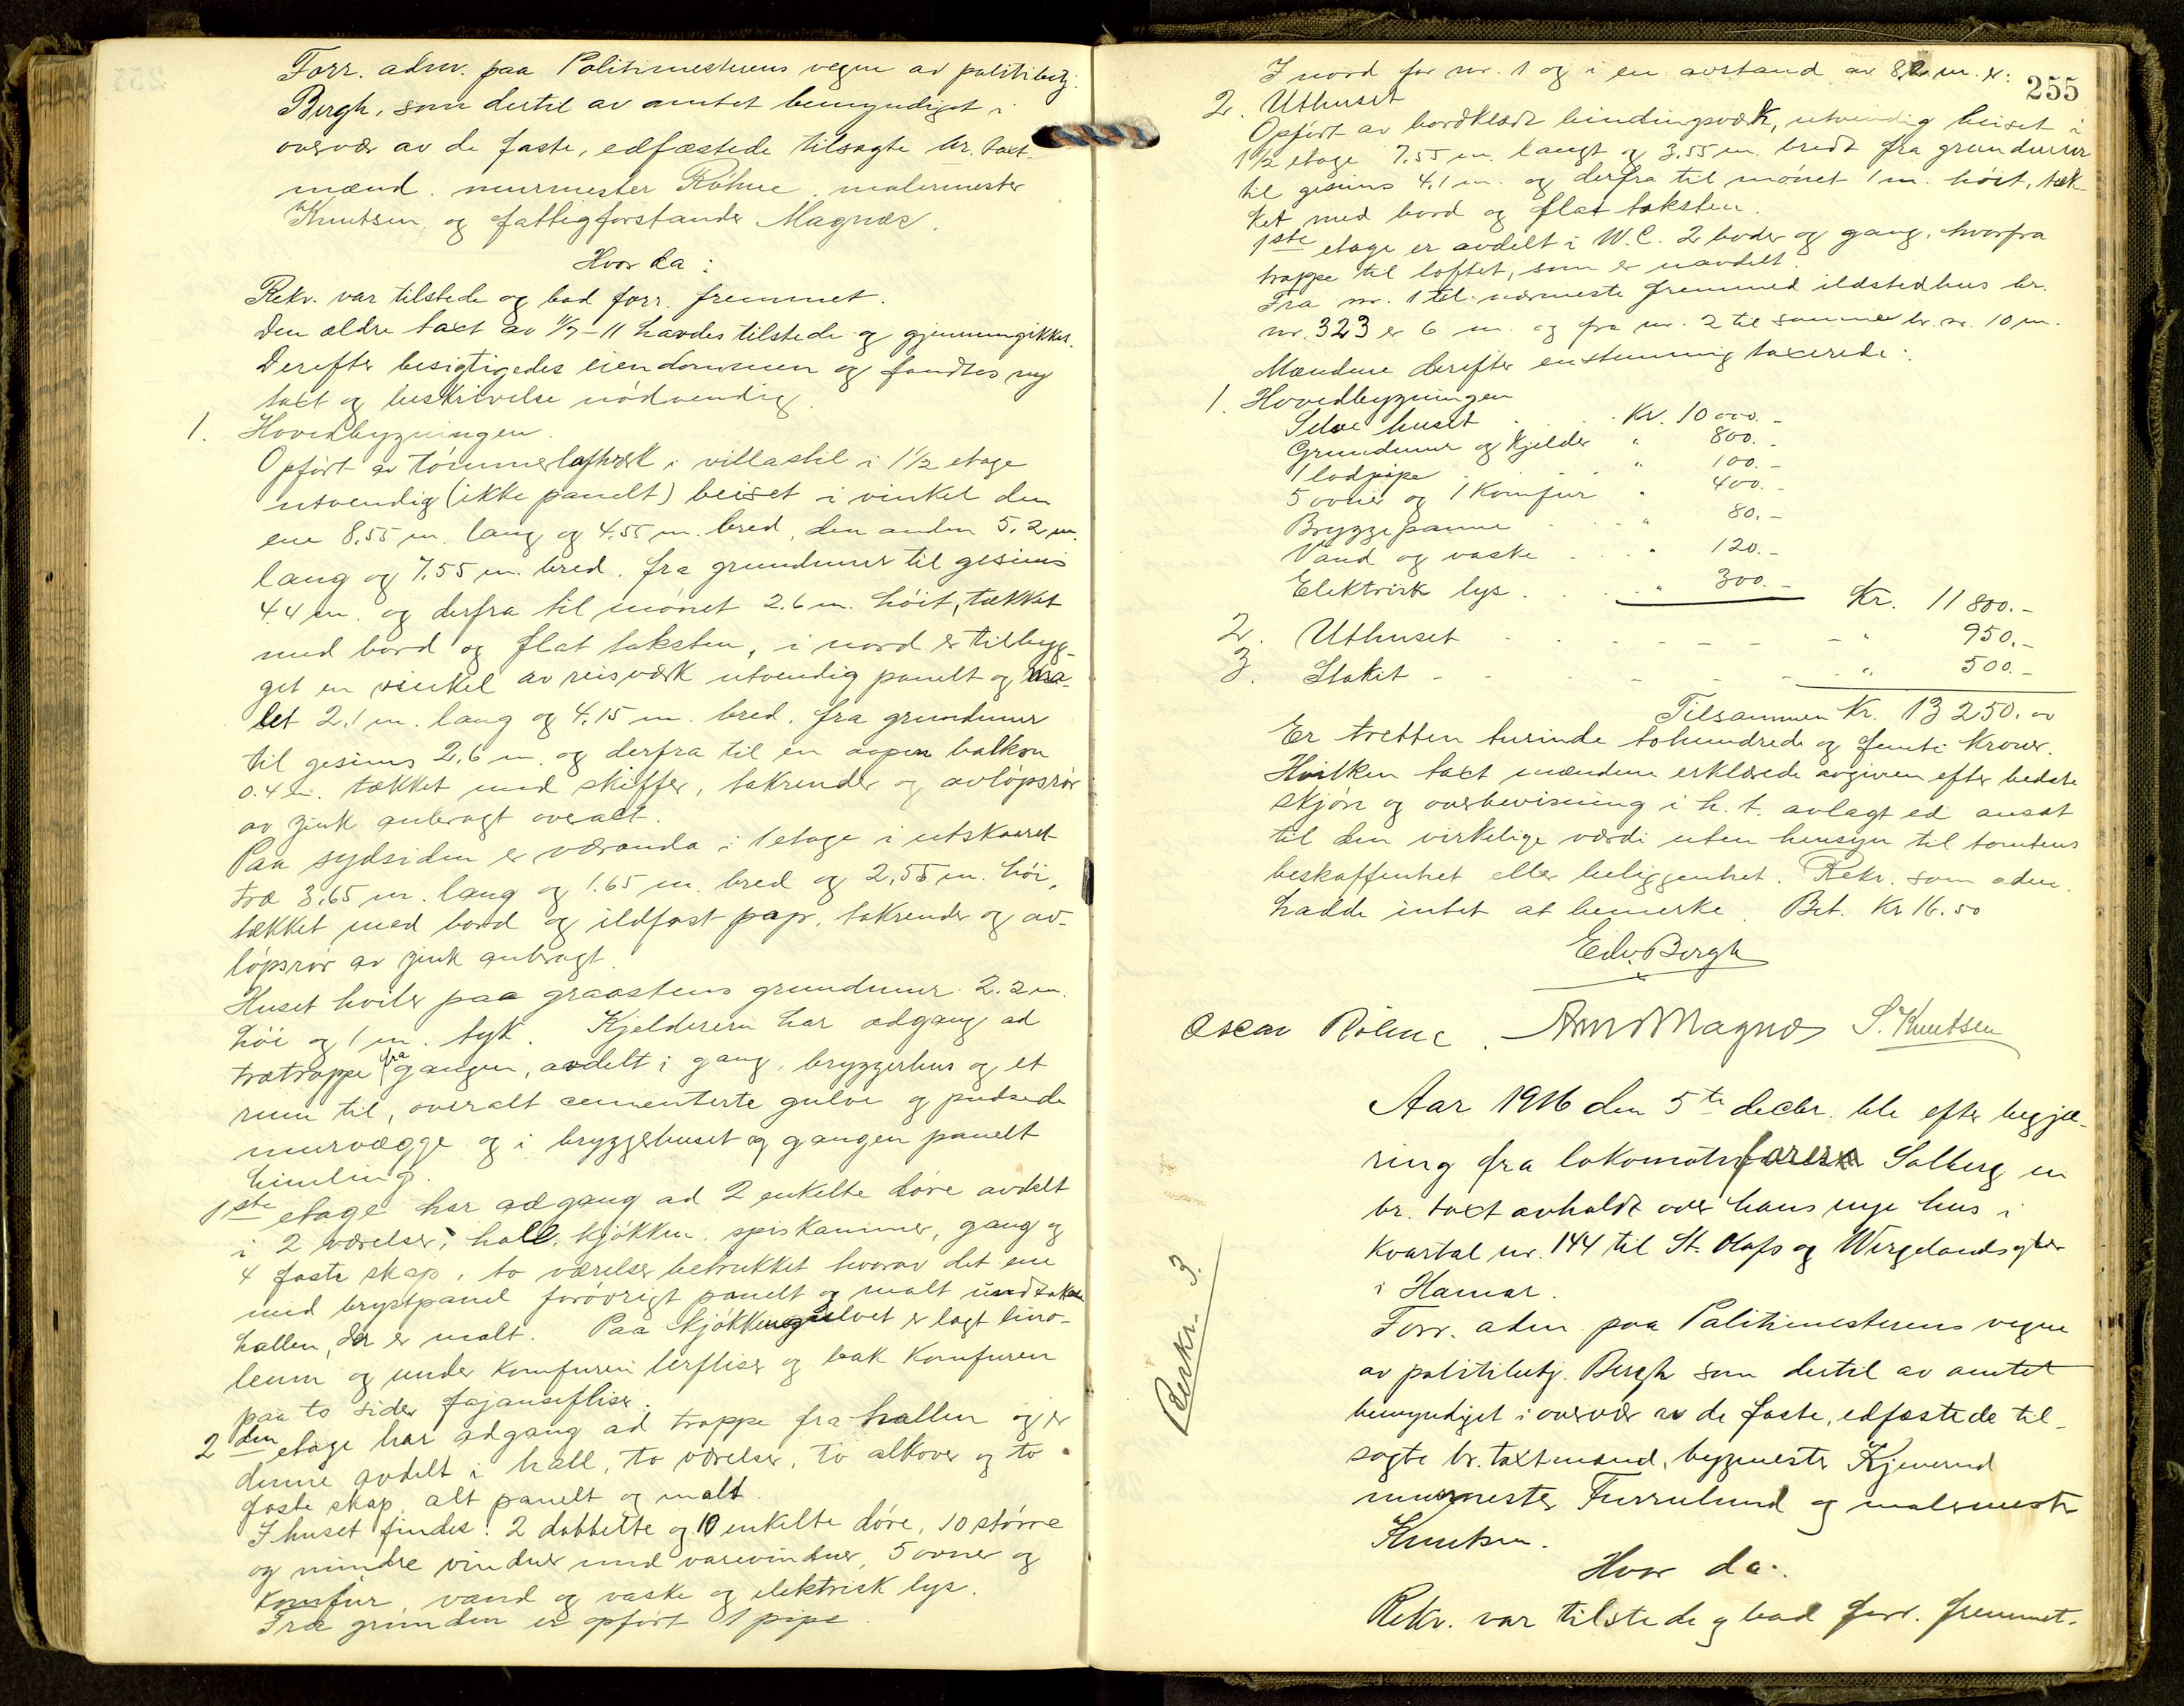 Forr. adm. paa Politimesterens vegne av politibetj.
Bergh, som dertil av amtet bemyndiget i
overvær av de faste, edfæstede tilsagte br. taxt-
mænd. murmester Røhne, malermester
Knutsen og fattigforstander Magnæs.
Hvor da:
Rekv. var tilstede og bad forr. fremmet.
Den ældre taxt av 1/7-11 havdes tilstede og gjennemgikkes.
Derefter besigtigedes eiendommen og fandtes ny
taxt og beskrivelse nødvendig.
1. Hovedbygningen.
Opført av tømmerlaftverk i villastil i 1½ etage
utvendig (ikke panelt) beiset i vinkel den
ene 8,55 m. lang og 4,55 m. bred, den anden 5,2 m.
lang og 7,55 m. bred, fra grundmur til gesims
4.4 m. og derfra til mønet 2.6 m. høit, tækket
med bord og flat taksten, i nord er tilbyg-
get en vinkel av reisværk utvendig panelt og ma-
let 2,1 m. lang og 4,15 m. bred, fra grundmur
til gesims 2,6 m. og derfra til en aapen balkon
0.4 m. tækket med skiffer, takrender og avløpsrør
av zink anbragt overalt.
Paa sydsiden er væranda i 1 etage i utskaaret
træ 3,65 m. lang og 1.65 m. bred og 2,55 m. høi,
tækket med bord og ildfast pap, takrender og av-
løpsrør av zink anbragt.
Huset hviler paa graastens grundmur 2.2 m.
høi og 1 m. tyk. Kjelderen har adgang ad
trætrappe fra gangen, avdelt i gang, bryggerhus og et
rum til, overalt cementerte gulve og pudsede
murvægge og i bryggerhuset og gangen panelt
himling.
1ste etage har adgang ad 2 enkelte døre avdelt
i 2 værelser, hall, kjøkken, spiskammer, gang og
4 faste skap, to værelser betrukket hvorav det ene
med brystpanel forøvrigt panelt og malt undtaken
hallen, der er malt. Paa kjøkkengulvet er lagt lino-
leum og under komfuren lerfliser og bak komfuren
paa to sider fajansefliser.
2den etage har adgang ad trappe fra hallen og er
denne avdelt i hall, to værelser, to alkover og to
faste skap, alt panelt og malt.
I huset findes: 2 dobbelte og 10 enkelte døre, 10 større
og mindre vinduer med varevinduer, 5 ovner og
komfur, vand og vaske og elektrisk lys.
Fra grunden er opført 1 pipe.
255
I nord for nr. 1 og i en avstand av 8,2 m. er:
2. Uthuset
Opført av bordklædt bindingsverk, utvendig beiset i
1½ etage 7,55 m. langt og 3,55 m. bredt fra grundmur
til gesims 4,1 m. og derfra til mønet 1 m. høit, tæk-
ket med bord og flat taksten.
1ste etage er avdelt i W.C. 2 boder og gang, hvorfra
trappe til loftet, som er uavdelt.
Fra nr. 1 til nærmeste fremmed ildstedhus br.
nr. 323 er 6 m. og fra nr. 2 til samme br. nr. 10 m.
Mændene derefter enstemmig taxerede:
1. Hovedbygningen
Selve huset . . Kr. 10 000.-
Grundmur og kjelder " 800.-
1 lodpipe . . " 100.-
5 ovner og 1 komfur " 400.-
Bryggepanne . . " 80.-
Vand og vaske . . " 120.-
Elektrisk lys . . . " 300.- Kr. 11 800.-
2. Uthuset - - - - - - " 950.-
3. Stakit - - - - - - " 500.-
Tilsammen Kr. 13 250.00
Er tretten tusinde tohundrede og femti kroner.
Hvilken taxt mændene erklærede avgiven efter bedste
skjøn og overbevisning i h. t. avlagt ed ansat
til den virkelige værdi uten hensyn til tomtens
beskaffenhet eller beliggenhet. Rekv. som adm.
hadde intet at bemerke. Bet. Kr 16.50
Edv. Bergh
Oscar Röhne. Arn Magnæs S. Knutsen
Aar 1916 den 5te decbr. ble efter begjæ-
ring fra lokomotivfører Solberg en
br. taxt avholdt over hans nye hus i
Kvartal nr. 144 til St. Olafs og Wergelandsgter
i Hamar.
Forr. adm. paa Politimesterens vegne
av politibetj. Bergh som dertil av amtet
bemyndiget i overvær av de faste, edfæstede til-
sagte br. taxtmænd, bygmester Kjeverud
murmester Furrulund og malermester
Knutsen.
Hvor da:
Rekv. var tilstede og bad forr. fremmet.
Beskr. 3.